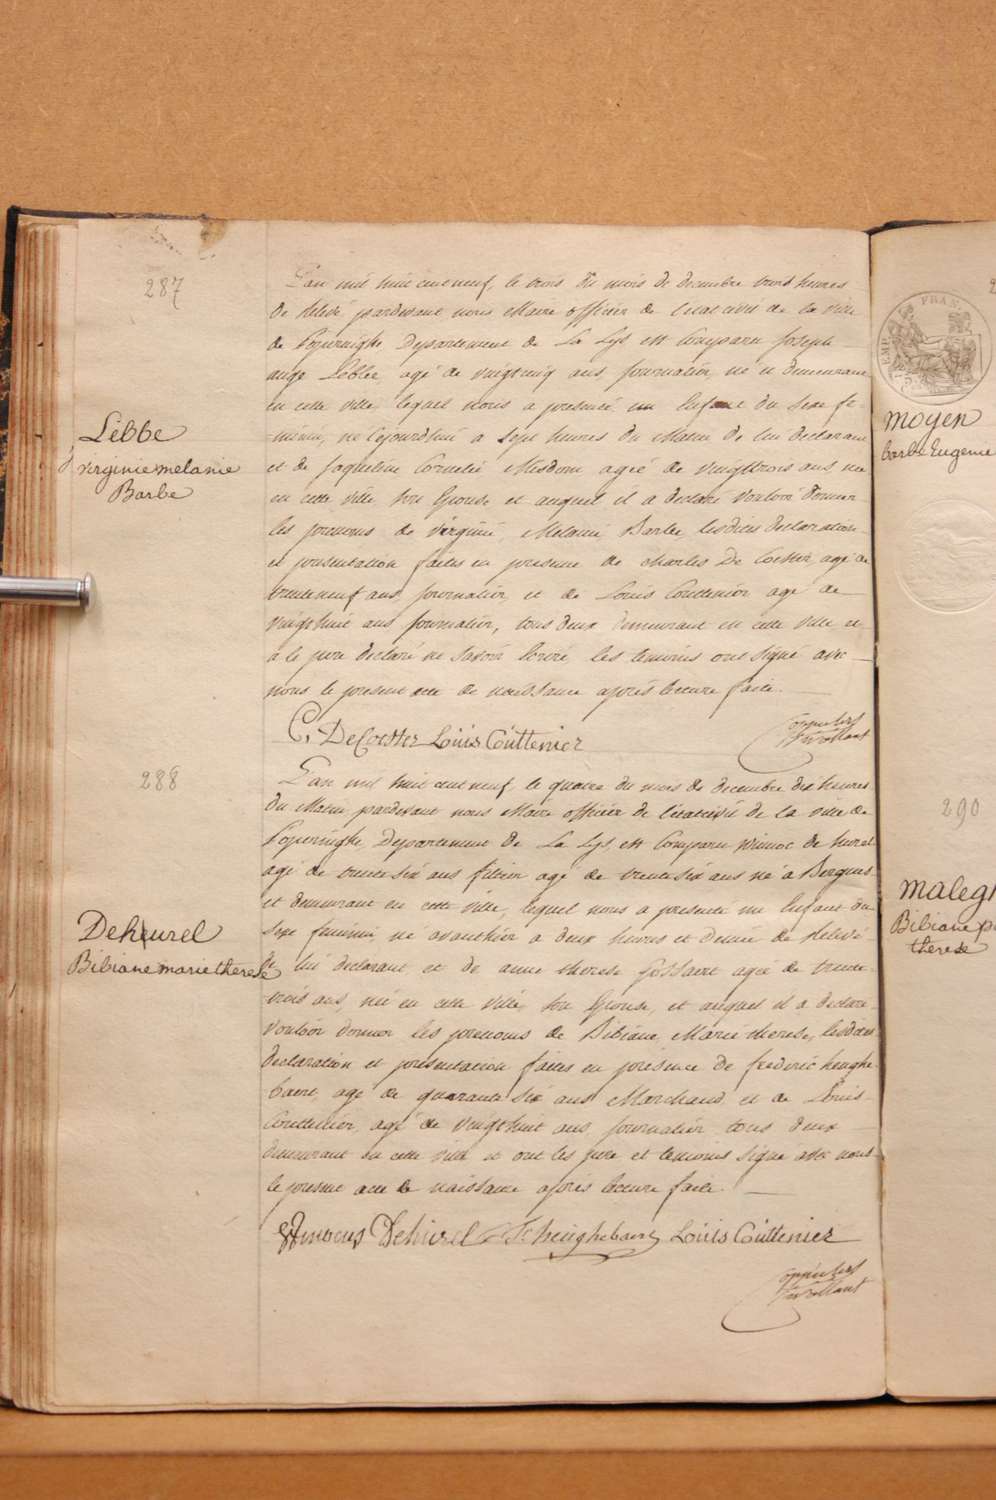 287
L'an mil huit cent neuf, le trois du mois de decembre trois heures
de relevé pardevant nous Maire officier de l'etat civil de la ville
de Poperinghe, Departement de La Lys est Comparu Joseph
ange Lebbe, agé de vingt cinq ans, journalier, né et demeurant
en cette ville, lequel nous a presenté un Enfant du sexe fe-
Lébbe
minin, né cejourdhui a Sept heures du Matin de lui declarant
virginie melanie
et de Jaqueline Cornelie Misdom agée de vingttrois ans née
Barbe
en cette ville son Epouse et auquel il a declaré vouloir donner
les prenoms de virginie, Melanie Barbe, lesdites declaration
et presentation faites en presence de charles De Coester, agé de
trenteneuf ans, journalier, et de Louis Couttenier agé de
vingthuit ans journalier, tous deux demeurant en cette ville et
a le pere declaré ne savoir Ecrire, les temoins ont signé avec
nous le present acte de naissance après lecture faite.
C. De Coester Louis Coüttenier
288
L'an mil huit cent neuf le quatre du mois de decembre dix heures
du Matin pardevant nous Maire officier de l'etat civil de la ville de
Poperinghe, Departement de La Lys est Comparu winnoc de hurel
agé de trente six ans fitier agé de trente six ans né à Bergues
et demeurant en cette ville, lequel nous a presenté un Enfant du
Deheurel
sexe feminin, né avanthier a deux heures et demie de relevé
Bibiane marie therese
de lui declarant et de anne therese Gossaert agée de trente
trois ans, née en cette ville, son Epouse, et auquel il a declaré
vouloir donner les prenoms de Bibiane, Marie therese, lesdites
declaration et presentation faites en présence de frederic heughe
baert, agé de quarante six ans Marchand et de Louis
Couttenier, agé de vingthuit ans, journalier tous deux
demeurant en cette ville et ont les pere et temoins signe avec nous
le present acte de naissance après lecture faite.
Dehurel heughebaert Louis Coüttenier
EMP FRAN
moyen
barbe Eugenie
290
Bibiane
therese